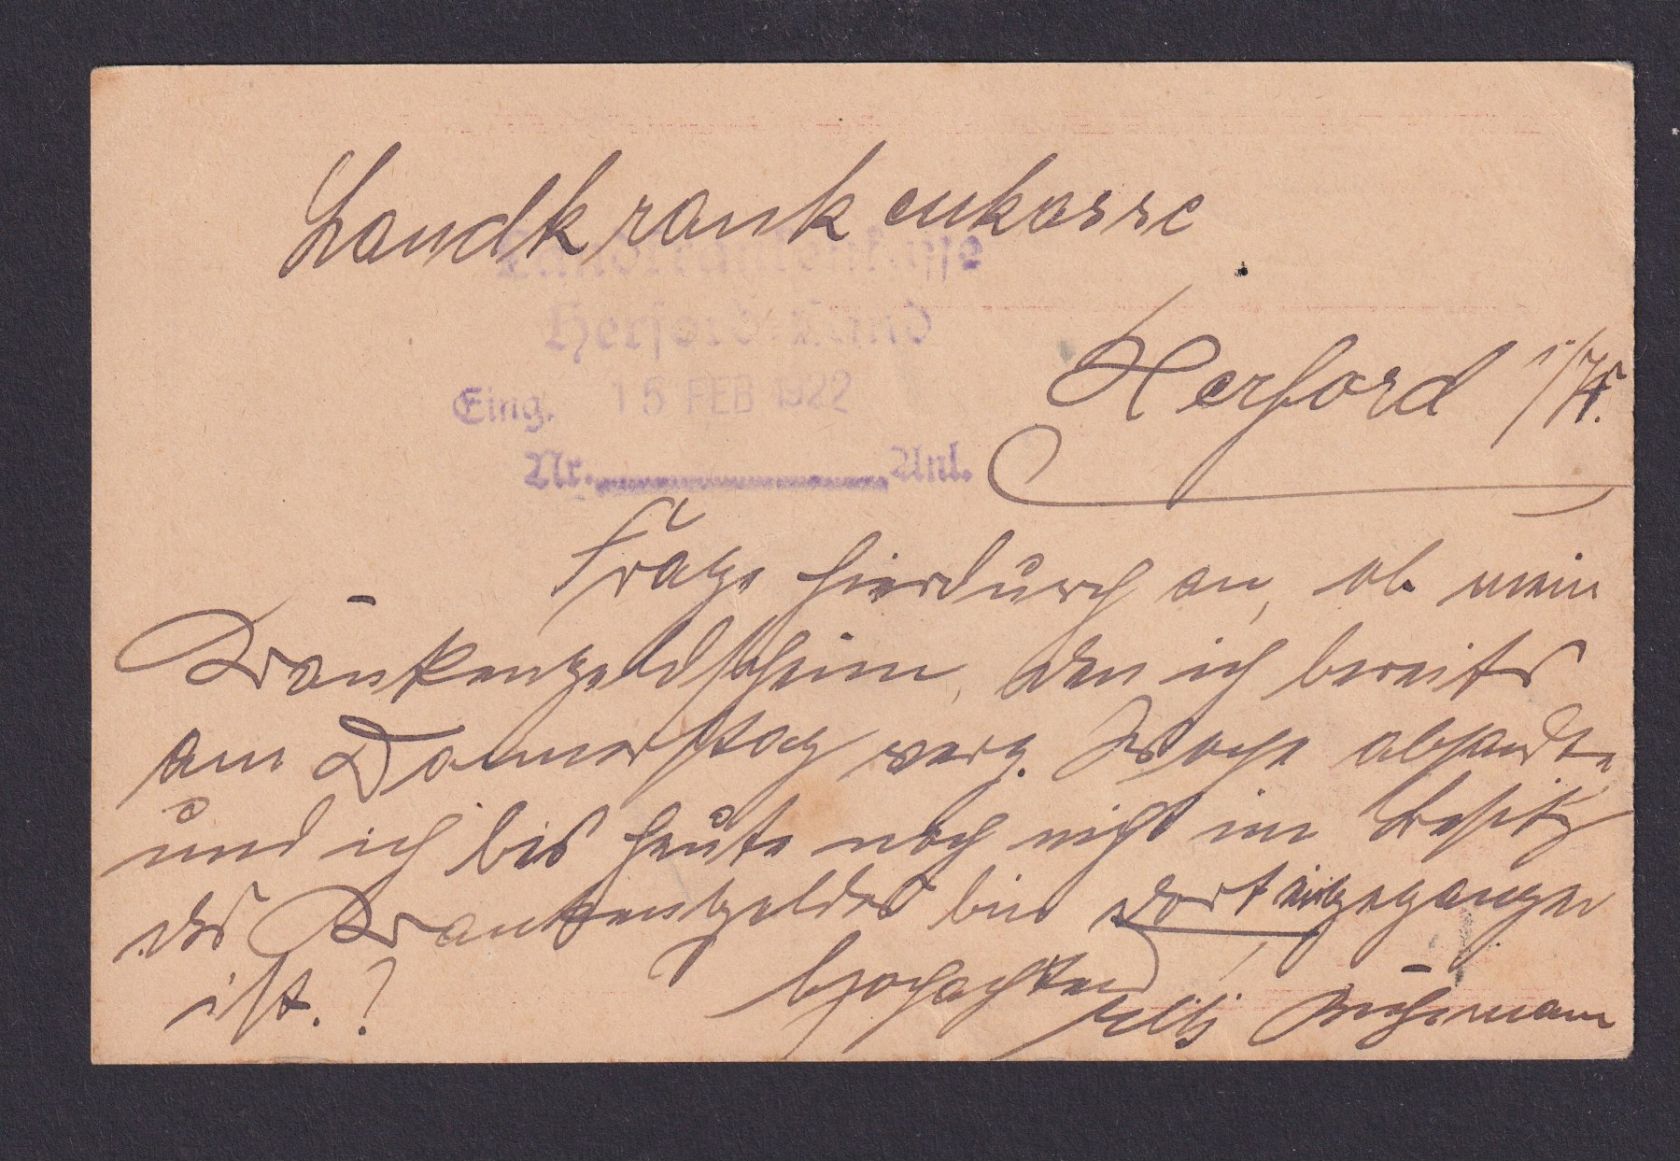 Landkrankenkasse
Landkrankenkasse
Herford-Land
Herford i/W.
Eing. 15 FEB 1922
Nr. Anl.
Frage hierdurch an, ob mein
Krankengeldschein, den ich bereits
am Donnerstag verg. Woche absandte
und ich bis heute noch nicht im Besitz
des Krankengeldes bin dort eingegangen
ist.?
hochachtend